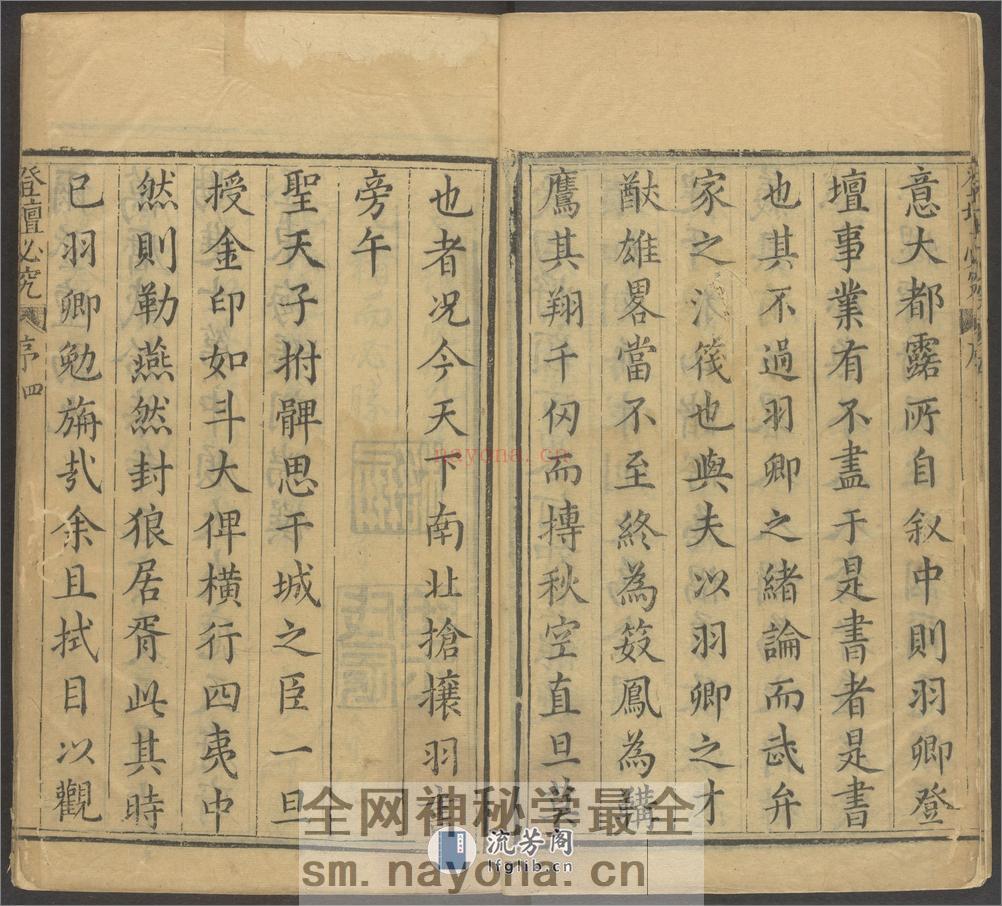 意大都露所自叙中則羽卿登
壇事業有不盡于是書者是書
也其不過羽卿之緒論而武弁
家之津筏也與夫以羽卿之才
猷雄畧當不至終為籹鳳為韝
鷹其翔千仭而搏秋空直旦莫
也者况今天下南北搶攘羽檄
旁午
聖天子拊髀思干城之臣一旦
授金印如斗大俾橫行四夷中
然則勒燕然封狼居胥此其時
已羽卿勉旃㢤余且拭目以觀
登壇必究 序 四
nayona.cn
全网神秘学最全
流芳阁
lfglib.cn
sm.nayona.cn